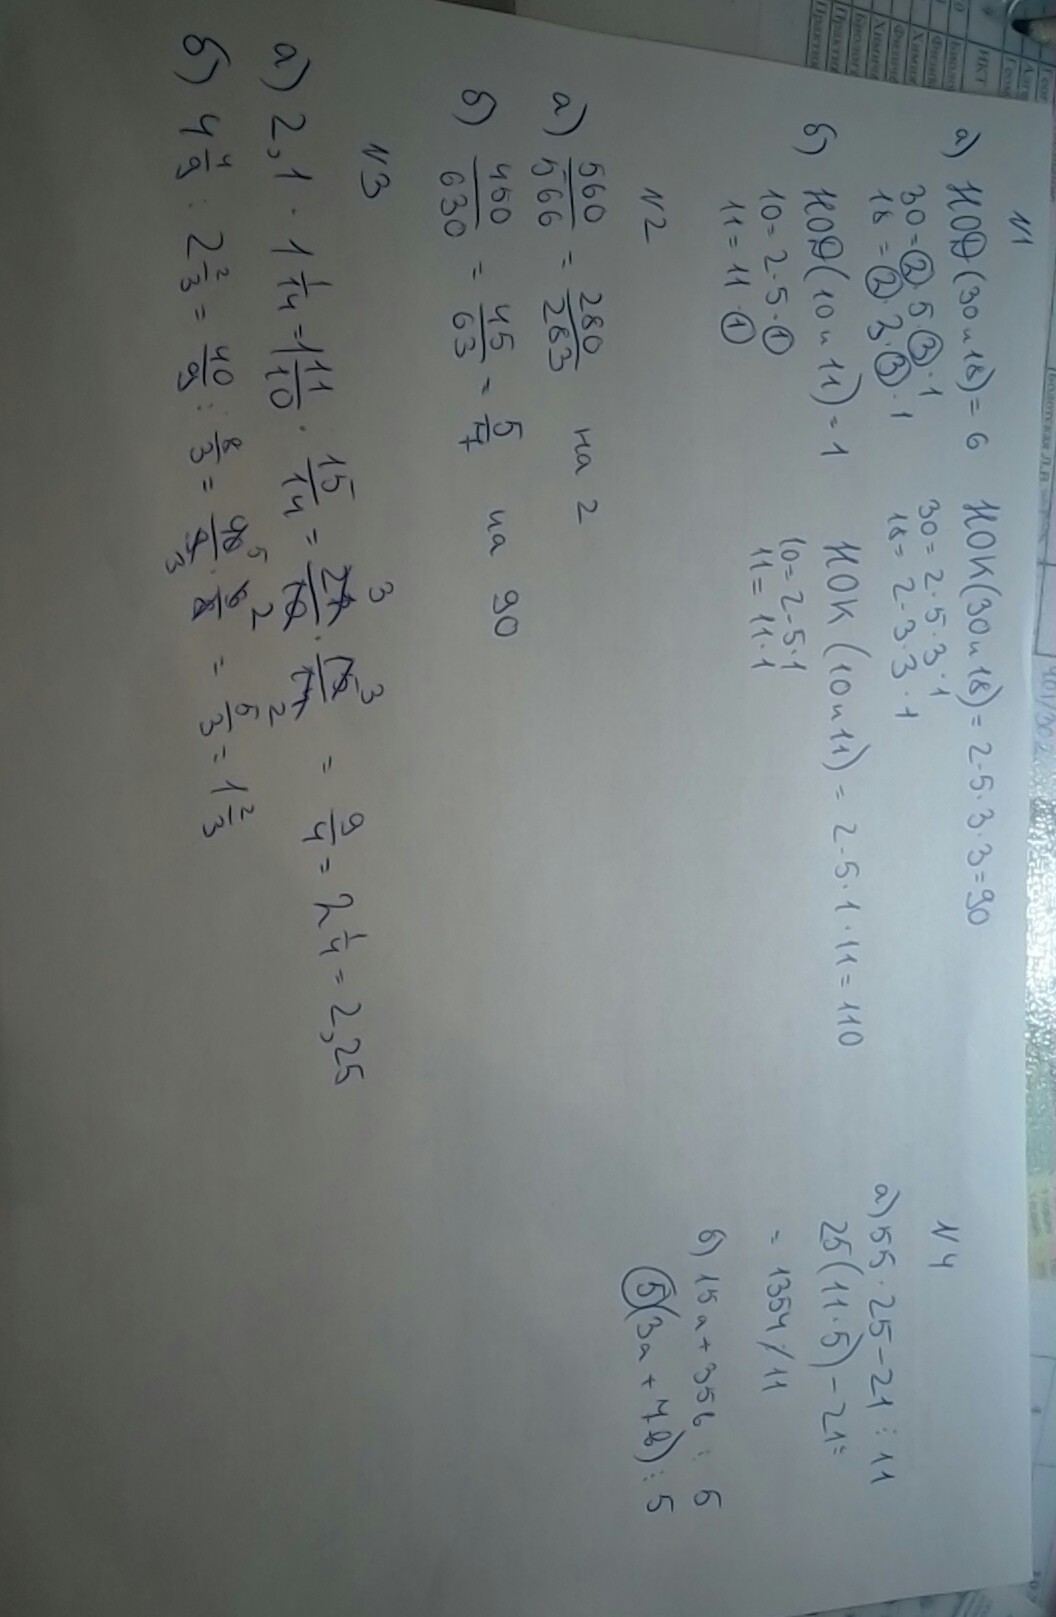 N1
а) НОД(30 и 18) = 6
30 = 2 · 5 · 3 · 1
18 = 2 · 3 · 3 · 1
НОК(30 и 18) = 2 · 5 · 3 · 3 = 90
30 = 2 · 5 · 3 · 1
18 = 2 · 3 · 3 · 1
б) НОД(10 и 11) = 1
10 = 2 · 5 · 1
11 = 11 · 1
НОК (10 и 11) = 2 · 5 · 1 · 11 = 110
10 = 2 · 5 · 1
11 = 11 · 1
N2
а) 560/566 = 280/283 на 2
б) 450/630 = 45/63 = 5/7 на 90
N3
а) 2,1 · 1 1/14 = 11/10 · 15/14 = 21 3/10 · 15 3/14 2 = 9/4 = 2 1/4 = 2,25
б) 4 4/9 : 2 2/3 = 40/9 : 8/3 = 40 5/9 3 · 6 2/8 = 5/3 = 1 2/3
N4
а) 55 · 25 – 21 : 11
25(11 · 5) – 21 =
= 1354 / 11
б) 15а + 35в : 5
5(3а + 7в) : 5
ИКТ